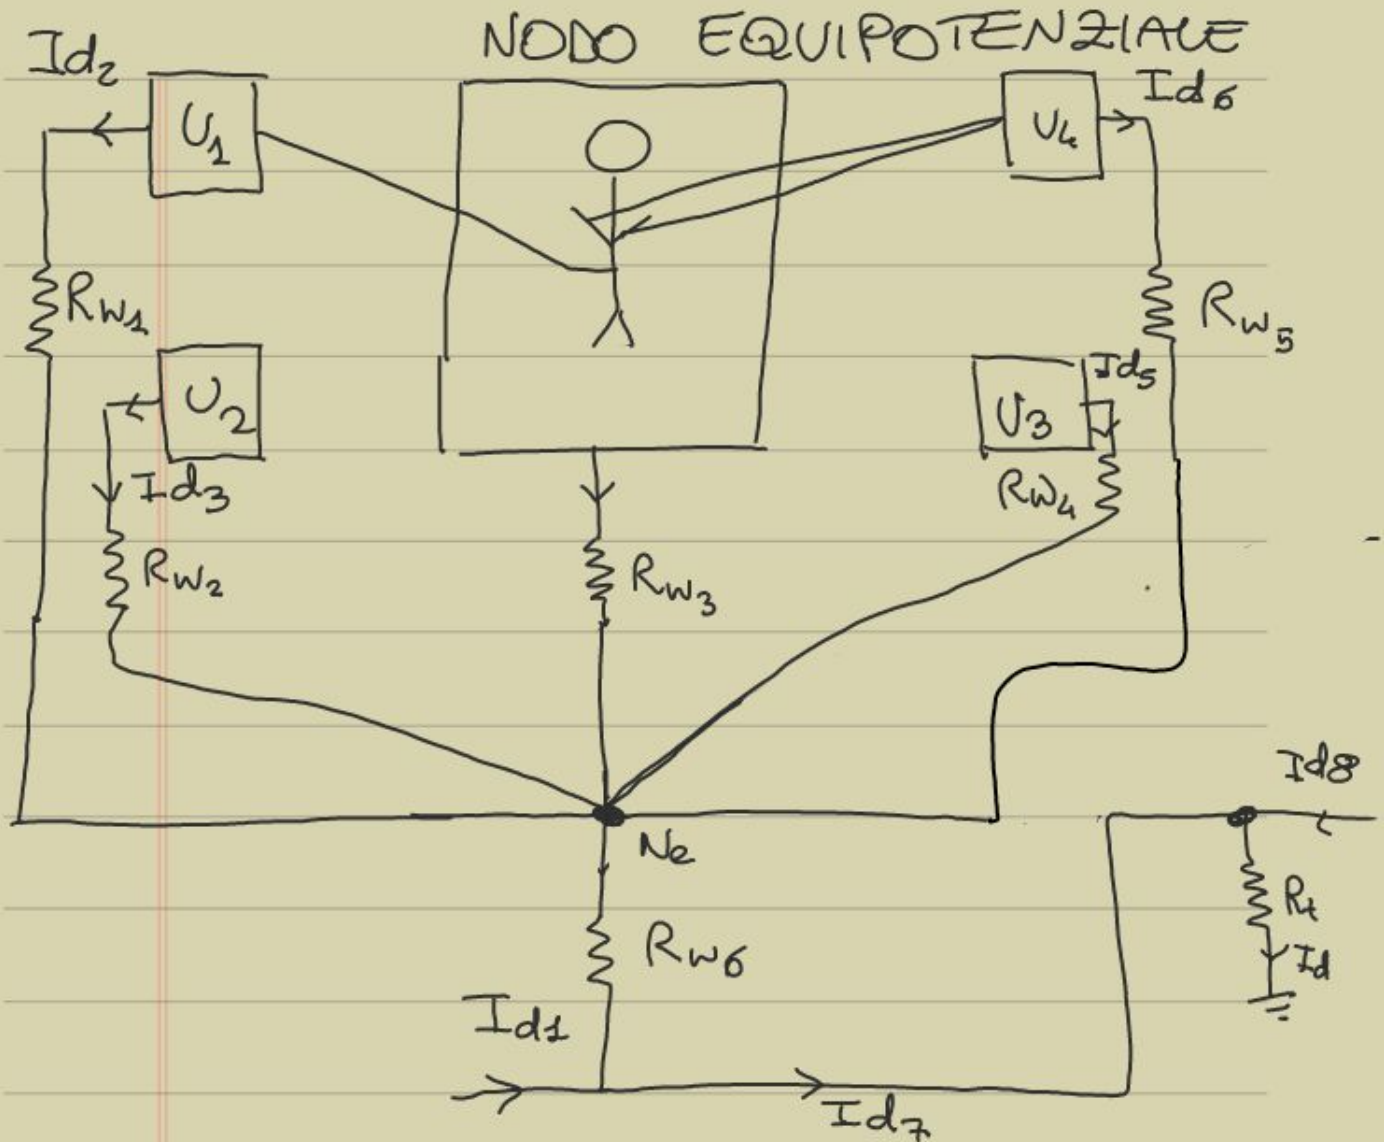 NODO EQUIPOTENZIALE
Id2
U1
U4
Id6
Rw1
Rw5
U2
U3
Id5
Id3
Rw4
Rw2
Rw3
Id8
Ne
Rt
Rw6
Id
Id1
Id7